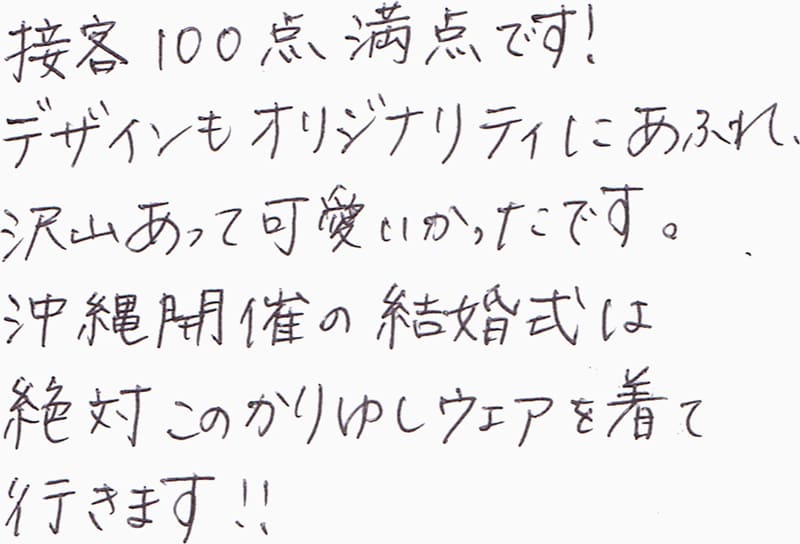 接客100点満点です!
デザインもオリジナリティにあふれ、
沢山あって可愛いかったです。
沖縄開催の結婚式は
絶対このかりゆしウェアを着て
行きます!!